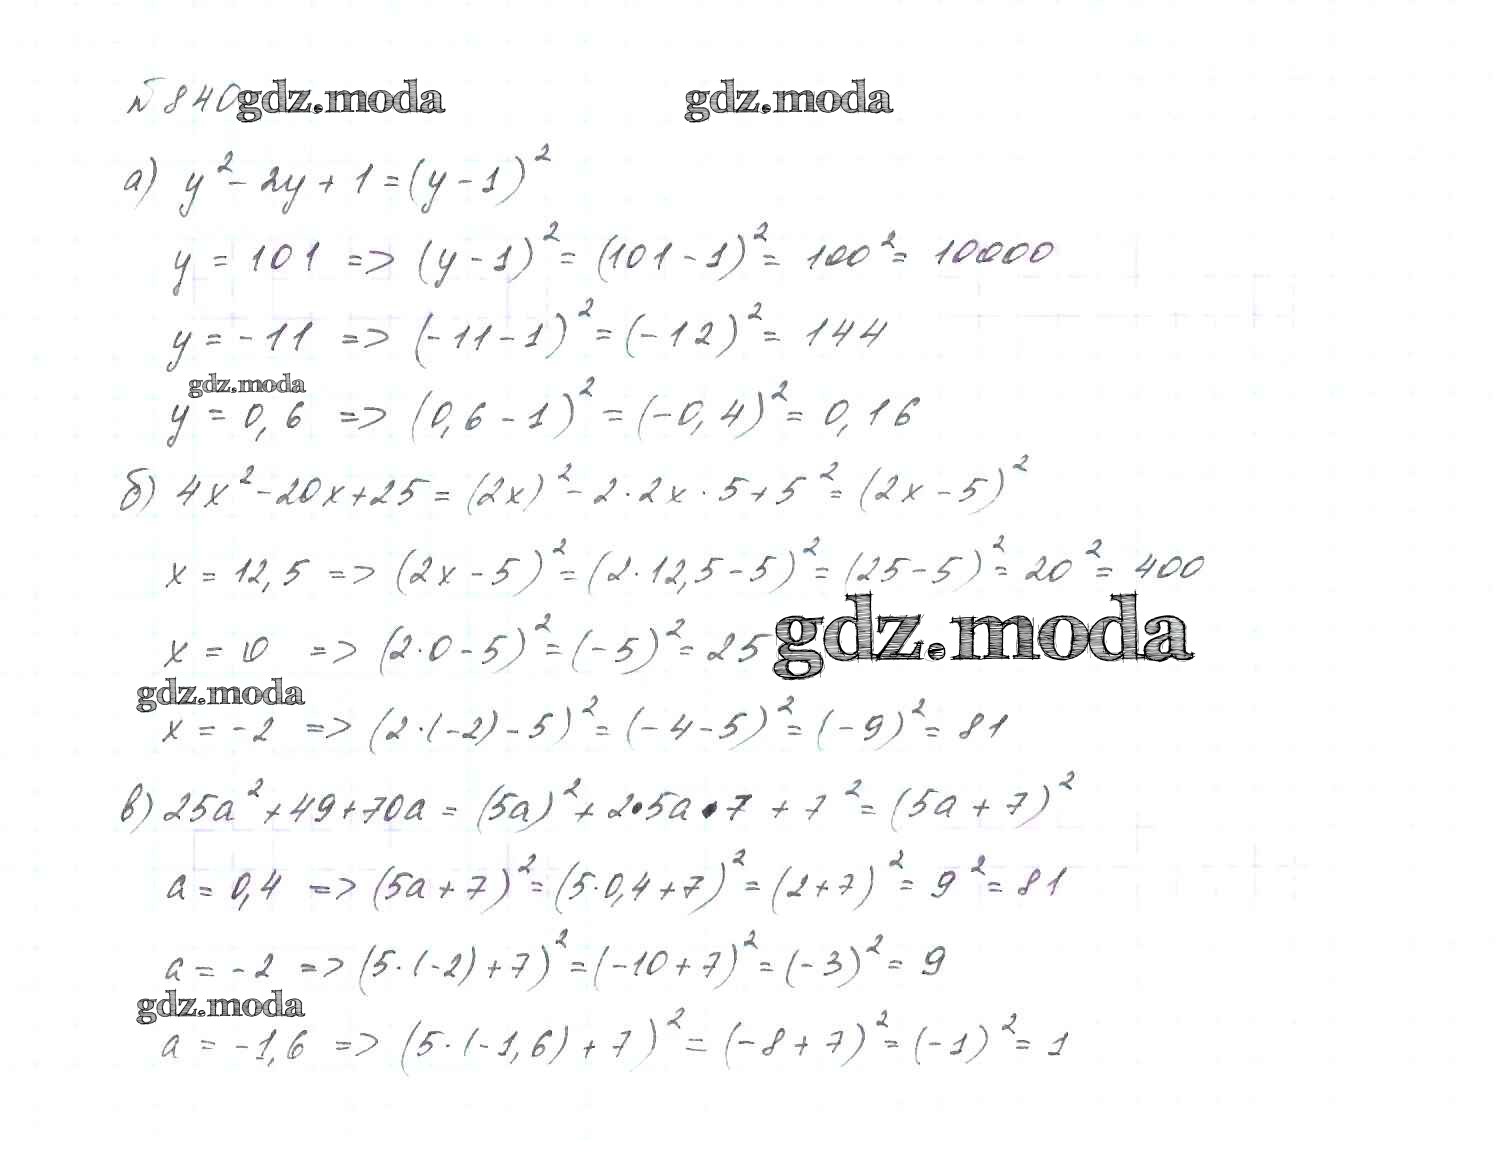 № 840 gdz.moda gdz.moda
а) y² - 2y + 1 = (y - 1)²
y = 101 => (y - 1)² = (101 - 1)² = 100² = 10000
y = -11 => (-11 - 1)² = (-12)² = 144
gdz.moda
y = 0,6 => (0,6 - 1)² = (-0,4)² = 0,16
б) 4x² - 20x + 25 = (2x)² - 2 · 2x · 5 + 5² = (2x - 5)²
x = 12,5 => (2x - 5)² = (2 · 12,5 - 5)² = (25 - 5)² = 20² = 400
x = 0 => (2 · 0 - 5)² = (-5)² = 25 gdz.moda
gdz.moda
x = -2 => (2 · (-2) - 5)² = (-4 - 5)² = (-9)² = 81
в) 25a² + 49 + 70a = (5a)² + 2 · 5a · 7 + 7² = (5a + 7)²
a = 0,4 => (5a + 7)² = (5 · 0,4 + 7)² = (2 + 7)² = 9² = 81
a = -2 => (5 · (-2) + 7)² = (-10 + 7)² = (-3)² = 9
gdz.moda
a = -1,6 => (5 · (-1,6) + 7)² = (-8 + 7)² = (-1)² = 1